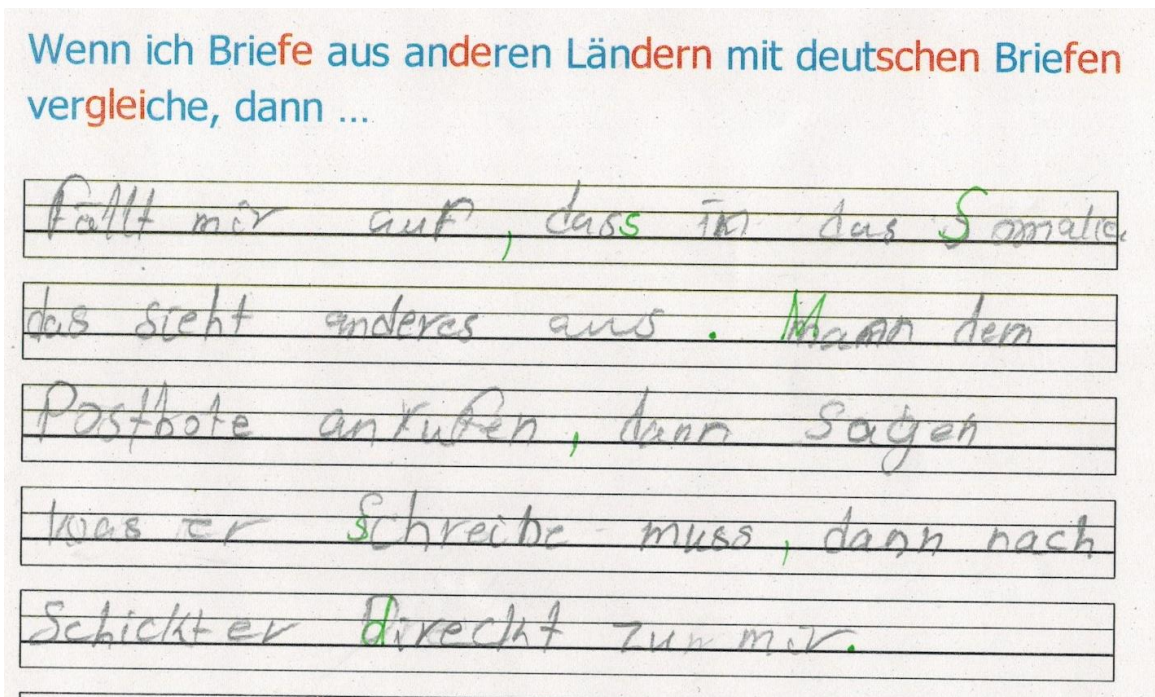 Wenn ich Briefe aus anderen Ländern mit deutschen Briefen
vergleiche, dann ...
fällt mir auf, dass in das Somalia
das sieht anderes aus. Mann dem
Postbote anrufen, dann sagen
was er schreibe muss, dann nach
Schickt er direckt zun mir.